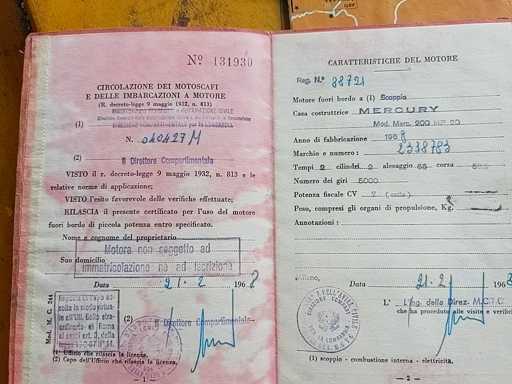 Nº 131930
CIRCOLAZIONE DEI MOTOSCAFI
E DELLE IMBARCAZIONI A MOTORE
(R. decreto-legge 9 maggio 1932, n. 813)
(1)
N. 040427M
(2) Il Direttore Compartimentale
VISTO il r. decreto-legge 9 maggio 1932, n. 813 e le
relative norme di applicazione;
VISTO l'esito favorevole delle verifiche effettuate;
RILASCIA il presente certificato per l'uso del motore
fuori bordo di piccola potenza entro specificato.
Nome e cognome del proprietario
Motore non soggetto ad
Suo domicilio
immatricolazione nè ad iscrizione
Data 21-2 1968
(2) Il Direttore Compartimentale
Mod. M. C. 244
(1) Ufficio che rilascia la licenza.
(2) Capo dell'Ufficio che rilascia la licenza.
— 1 —
CARATTERISTICHE DEL MOTORE
Reg. N.° 88721
Motore fuori bordo a (1) Scoppio
Casa costruttrice MERCURY
Mod. Merc. 200 HP 20
Anno di fabbricazione 1968
Marchio e numero: 2338783
Tempi 2 cilindri 2 alesaggio corsa
Numero dei giri 5000
Potenza fiscale CV
Peso, compresi gli organi di propulsione, Kg.
Annotazioni:
Milano, Data 21.2 1968
L' Ing. della Direz. M.C.T.C.
che ha proceduto alle visite e verifiche
(1) scoppio - combustione interna - elettricità.
— 2 —